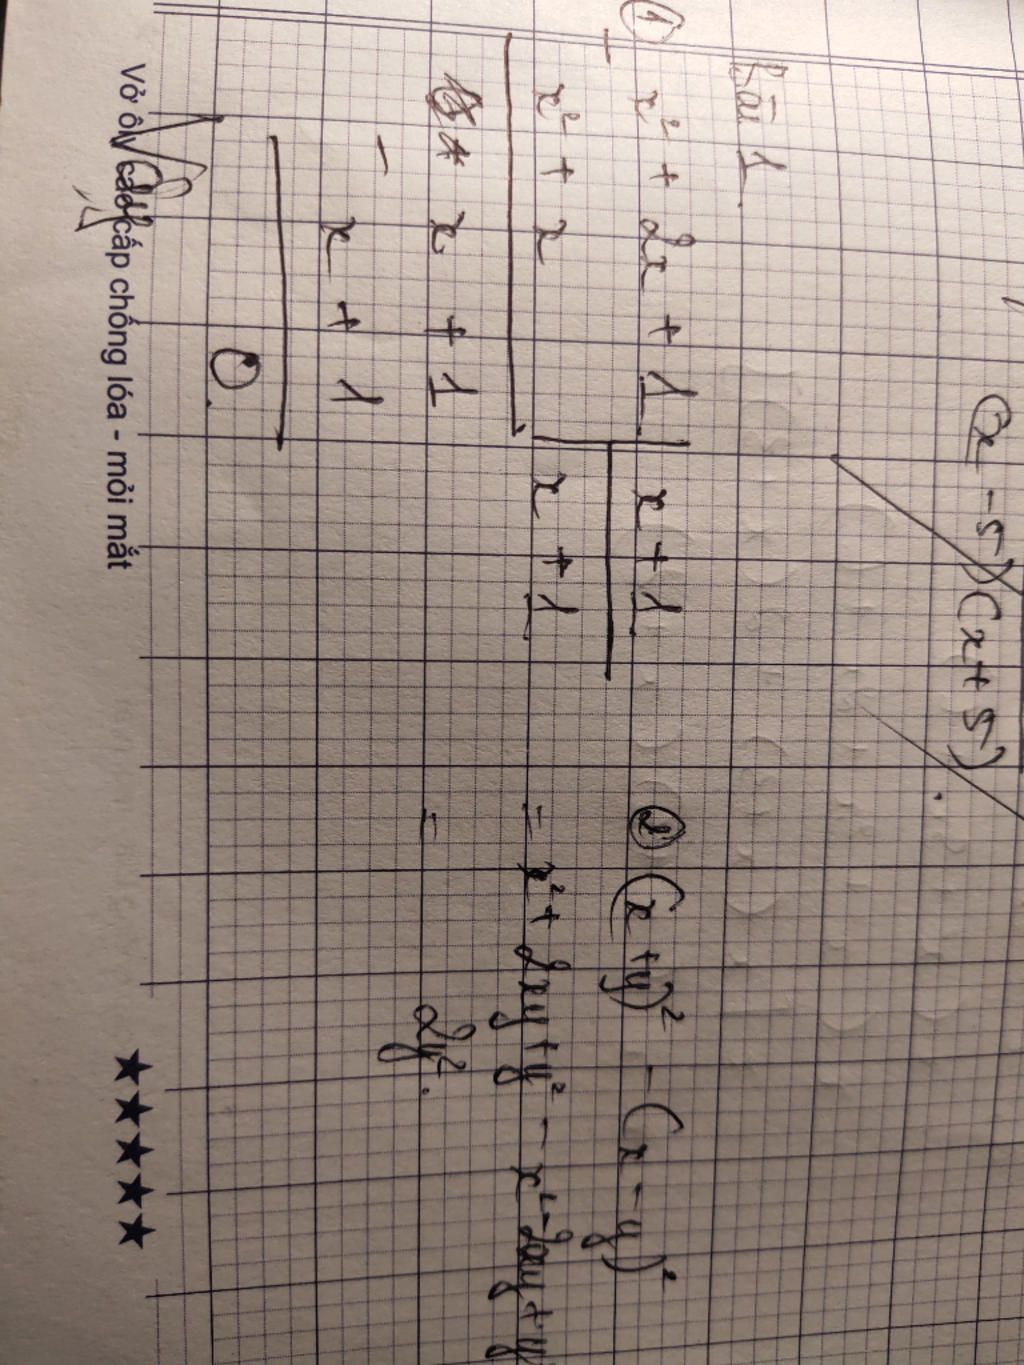 (x - 5)(x + 5).
Bài 1
① x² + 2x + 1 | x + 1
-
x² + x | x + 1
x + 1
-
x + 1
0.
② (x + y)² - (x - y)²
= x² + 2xy + y² - x² - 2xy + y
= 2y².
Vở ôly cao cấp chống lóa - mỏi mắt ★★★★★